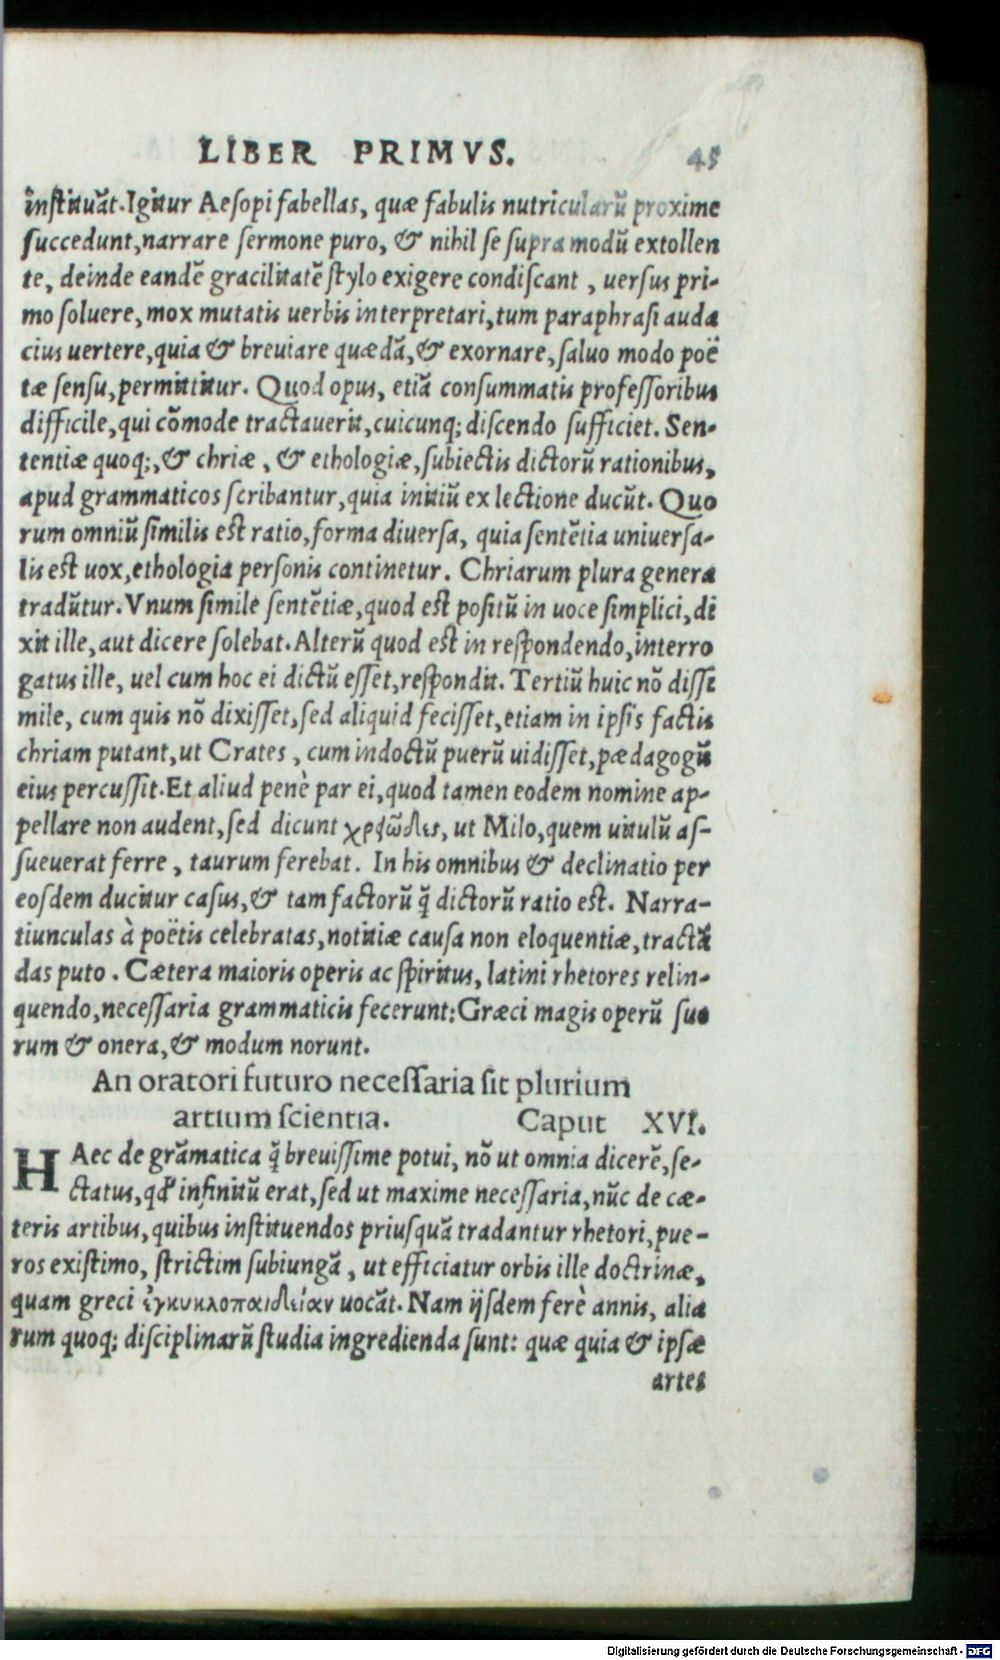 LIBER PRIMVS. 45
instituāt. Igitur Aesopi fabellas, quæ fabulis nutricularū proxime
succedunt, narrare sermone puro, & nihil se supra modū extollen
te, deinde eandē gracilitatē stylo exigere condiscant, uersus pri-
mo soluere, mox mutatis uerbis interpretari, tum paraphrasi auda
cius uertere, quia & breuiare quædā, & exornare, saluo modo poë
tæ sensu, permittitur. Quod opus, etiā consummatis professoribus
difficile, qui cōmode tractauerit, cuicunq; discendo sufficiet. Sen-
tentiæ quoq;, & chriæ, & ethologiæ, subiectis dictorū rationibus,
apud grammaticos scribantur, quia initiū ex lectione ducūt. Quo
rum omniū similis est ratio, forma diuersa, quia sentētia uniuersa-
lis est uox, ethologia personis continetur. Chriarum plura genera
tradūtur. Vnum simile sentētiæ, quod est positū in uoce simplici, di
xit ille, aut dicere solebat. Alterū quod est in respondendo, interro
gatus ille, uel cum hoc ei dictū esset, respondit. Tertiū huic nō dissi
mile, cum quis nō dixisset, sed aliquid fecisset, etiam in ipsis factis
chriam putant, ut Crates, cum indoctū puerū uidisset, pædagogū
eius percussit. Et aliud penè par ei, quod tamen eodem nomine ap-
pellare non audent, sed dicunt χρειῶδες, ut Milo, quem uitulū as-
sueuerat ferre, taurum ferebat. In his omnibus & declinatio per
eosdem ducitur casus, & tam factorū q̃ dictorū ratio est. Narra-
tiunculas à poëtis celebratas, notitiæ causa non eloquentiæ, tractā
das puto. Cætera maioris operis ac spiritus, latini rhetores relin-
quendo, necessaria grammaticis fecerunt: Græci magis operū suo
rum & onera, & modum norunt.
An oratori futuro necessaria sit plurium
artium scientia. Caput XVI.
HAec de grāmatica q̃ breuissime potui, nō ut omnia dicerē, se-
ctatus, qđ infinitū erat, sed ut maxime necessaria, nūc de cæ-
teris artibus, quibus instituendos priusquā tradantur rhetori, pue-
ros existimo, strictim subiungā, ut efficiatur orbis ille doctrinæ,
quam greci ἐγκυκλοπαιδείαν uocāt. Nam ijsdem ferè annis, alia
rum quoq; disciplinarū studia ingredienda sunt: quæ quia & ipsæ
artes
Digitalisierung gefördert durch die Deutsche Forschungsgemeinschaft - DFG